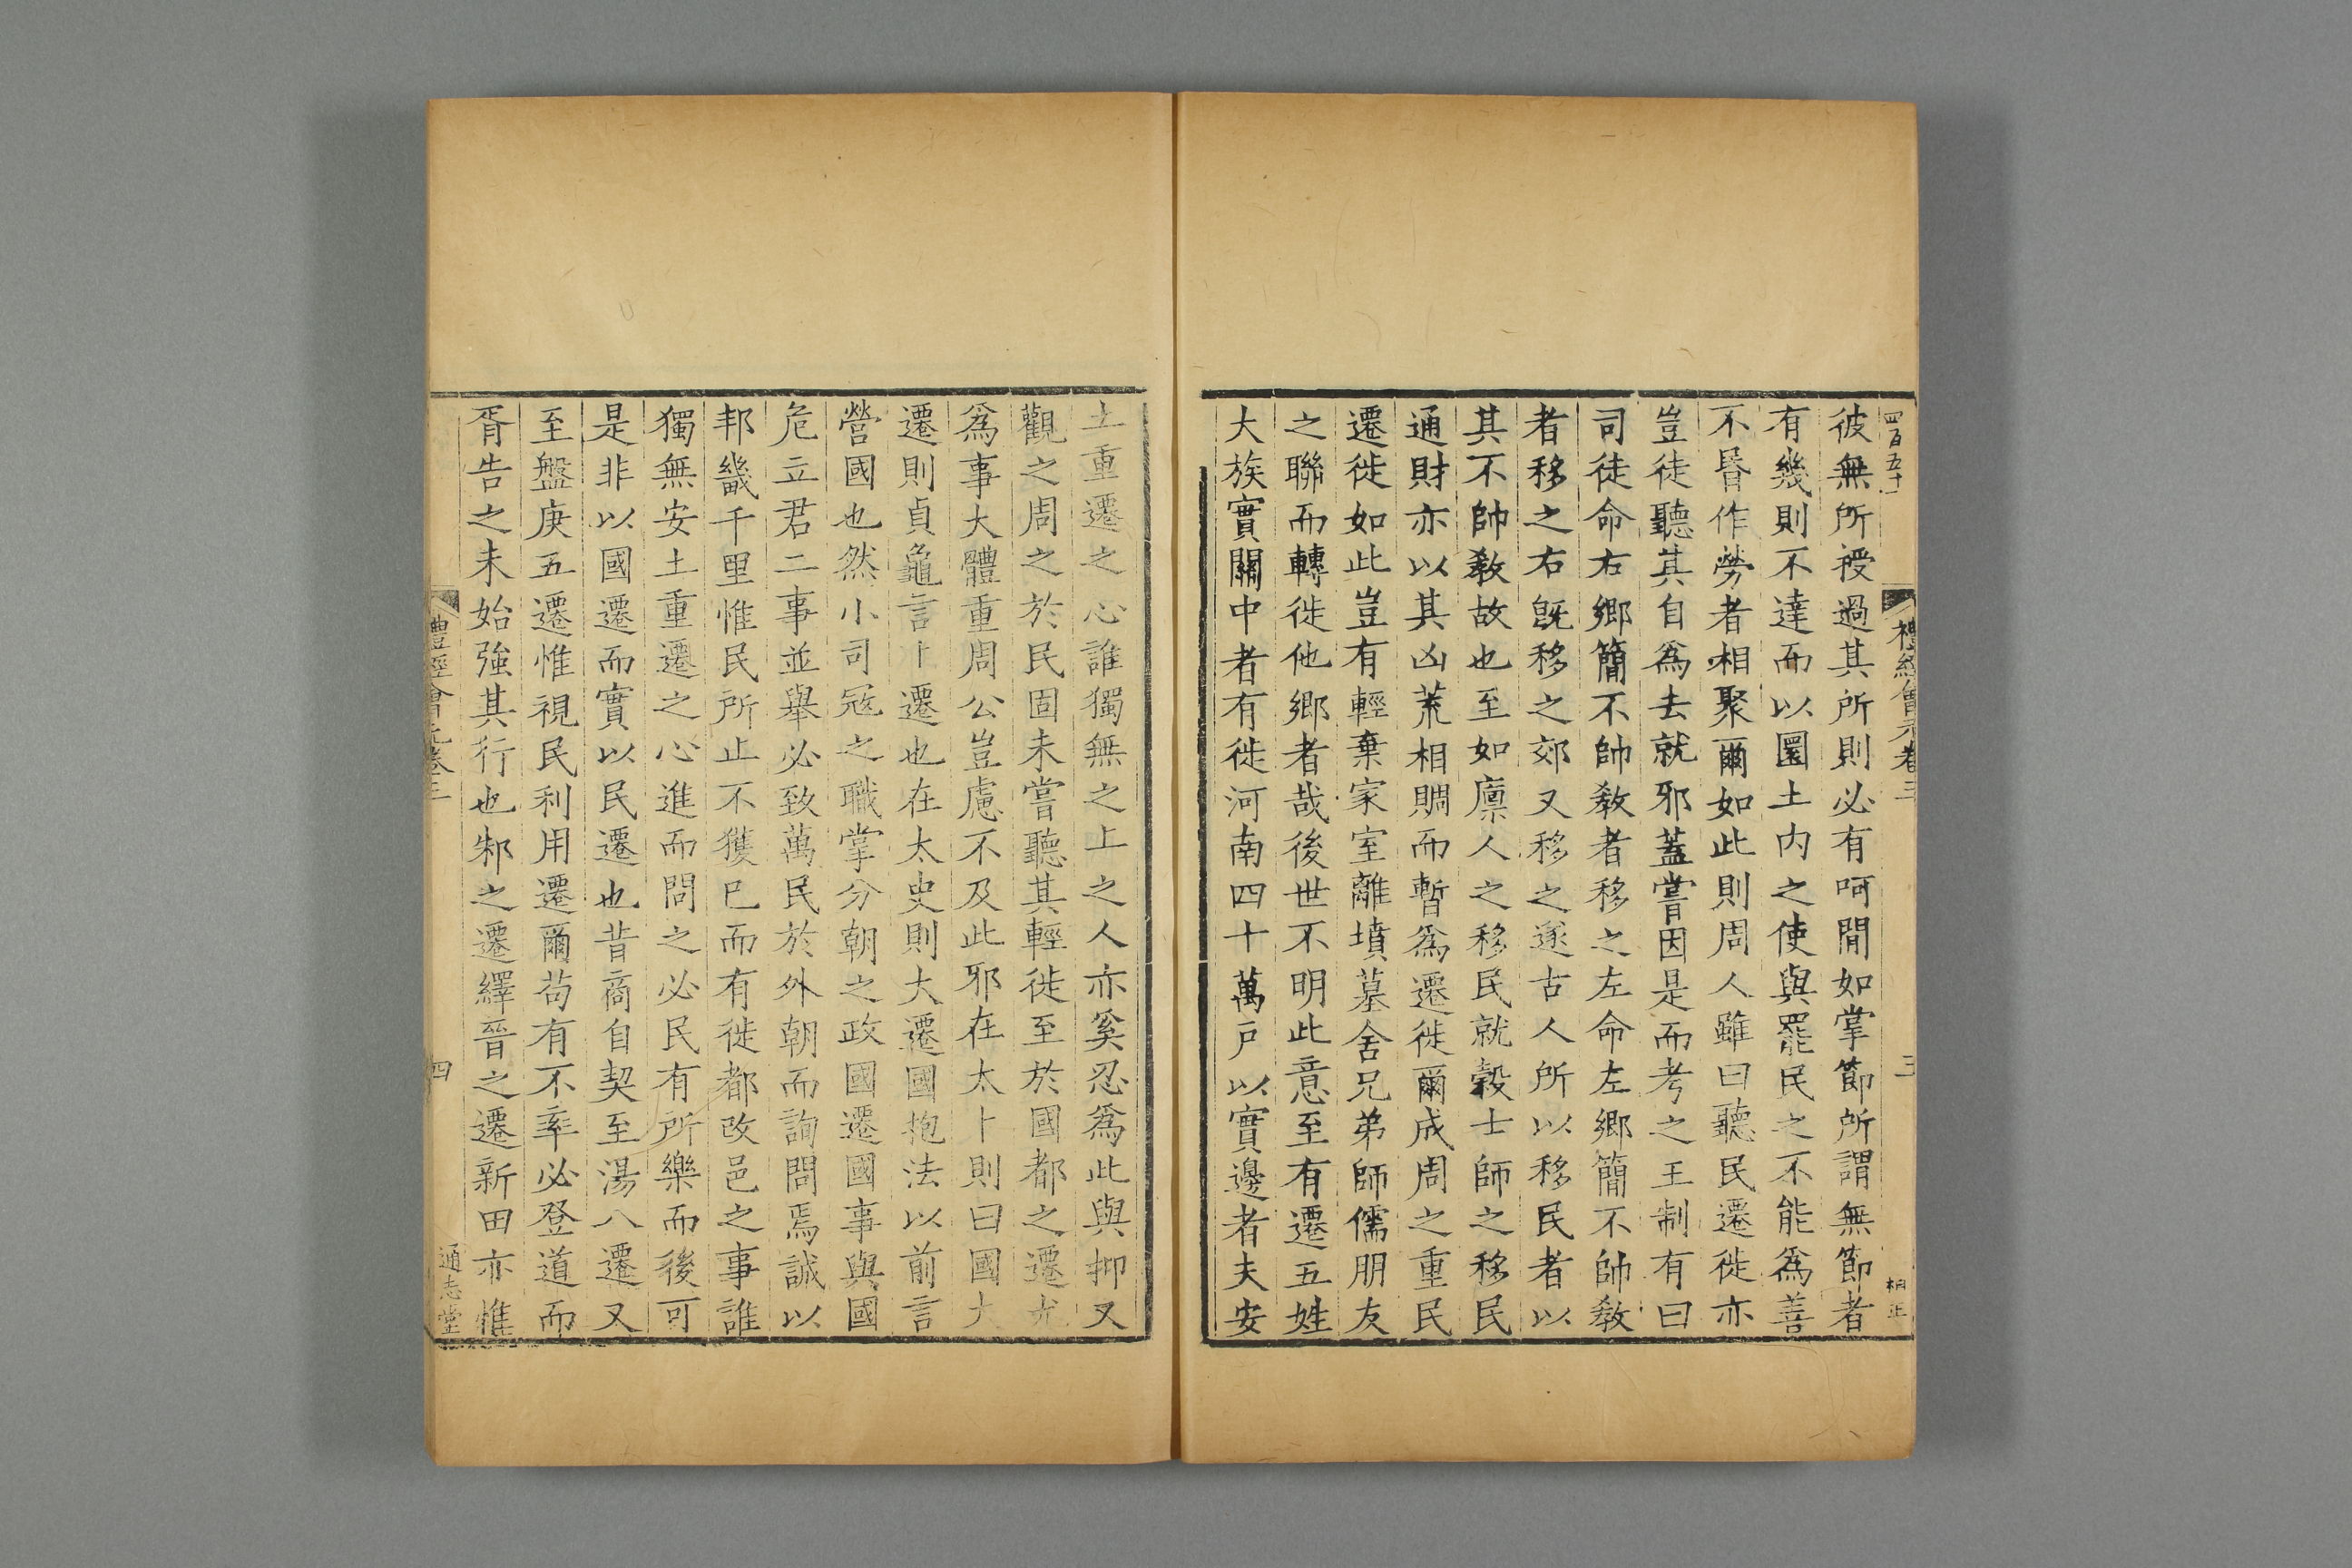 四百五十一
禮經會元卷三
三
桐正
彼無所授過其所則必有呵問如掌節所謂無節者
有幾則不達而以圜土内之使與罷民之不能爲善
不昬作勞者相聚爾如此則周人雖曰聽民遷徙亦
豈徒聽其自爲去就邪蓋嘗因是而考之王制有曰
司徒命右鄉簡不帥教者移之左命左鄉簡不帥教
者移之右旣移之郊又移之遂古人所以移民者以
其不帥教故也至如廪人之移民就穀士師之移民
通財亦以其凶荒相賙而暫爲遷徙爾成周之重民
遷徙如此豈有輕棄家室離墳墓舍兄弟師儒朋友
之聯而轉徙他鄉者哉後世不明此意至有遷五姓
大族實關中者有徙河南四十萬戸以實邊者夫安
土重遷之心誰獨無之上之人亦奚忍爲此與抑又
觀之周之於民固未嘗聽其輕徙至於國都之遷尤
爲事大體重周公豈慮不及此邪在太卜則曰國大
遷則貞龜言卜遷也在太史則大遷國抱法以前言
營國也然小司冦之職掌分朝之政國遷國事與國
危立君二事並舉必致萬民於外朝而詢問焉誠以
邦畿千里惟民所止不獲已而有徙都改邑之事誰
獨無安土重遷之心進而問之必民有所樂而後可
是非以國遷而實以民遷也昔商自契至湯八遷又
至盤庚五遷惟視民利用遷爾苟有不率必登道而
胥告之未始強其行也邾之遷繹晉之遷新田亦惟
禮經會元卷三
四
通志堂